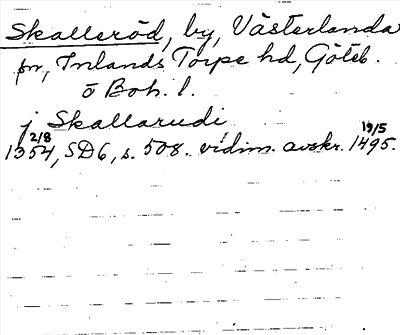 Skalleröd, by, Västerlanda
sn, Inlands Torpe hd, Göteb.
o Boh. l.
j Skallarudi
2/8 19/5
1354, SD6, s. 508. vidim. avskr. 1495.